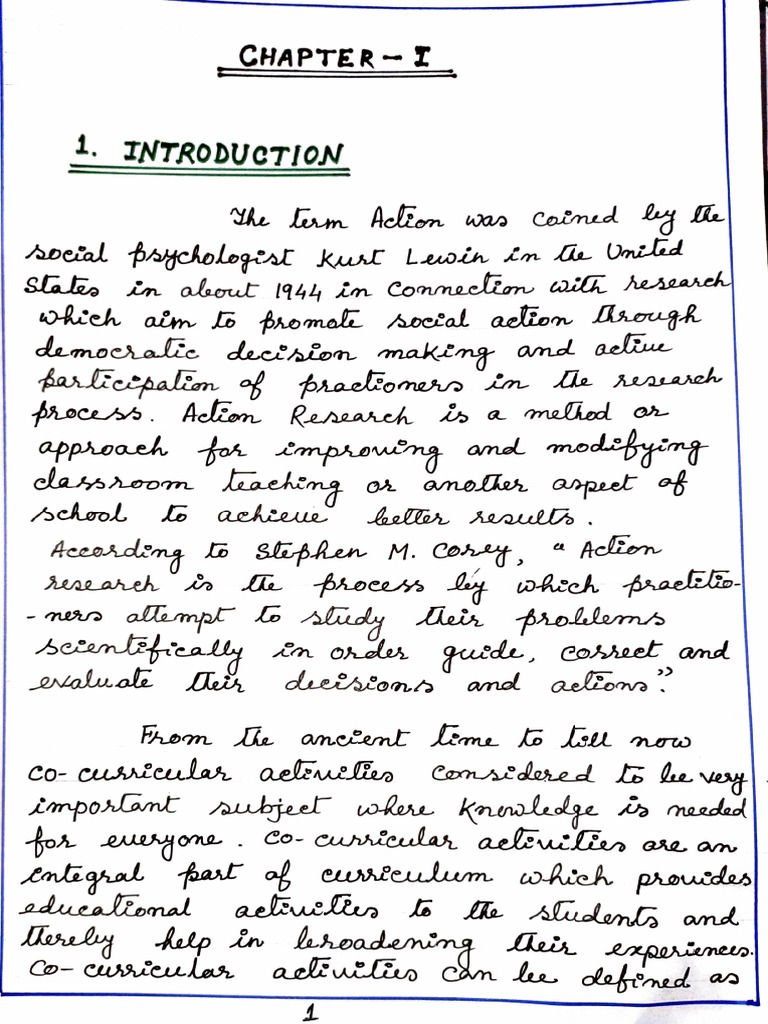 CHAPTER - I
1. INTRODUCTION
The term Action was coined by the
social psychologist Kurt Lewin in the United
States in about 1944 in connection with research
which aim to promote social action through
democratic decision making and active
participation of practioners in the research
process. Action Research is a method or
approach for improving and modifying
classroom teaching or another aspect of
school to achieve better results.
According to Stephen M. Corey, " Action
research is the process by which practitio-
-ners attempt to study their problems
scientifically in order guide, correct and
evaluate their decisions and actions".
From the ancient time to till now
co-curricular activities considered to be very
important subject where knowledge is needed
for everyone. Co-curricular activities are an
integral part of curriculum which provides
educational activities to the students and
thereby help in broadening their experiences.
Co-curricular activities can be defined as
1